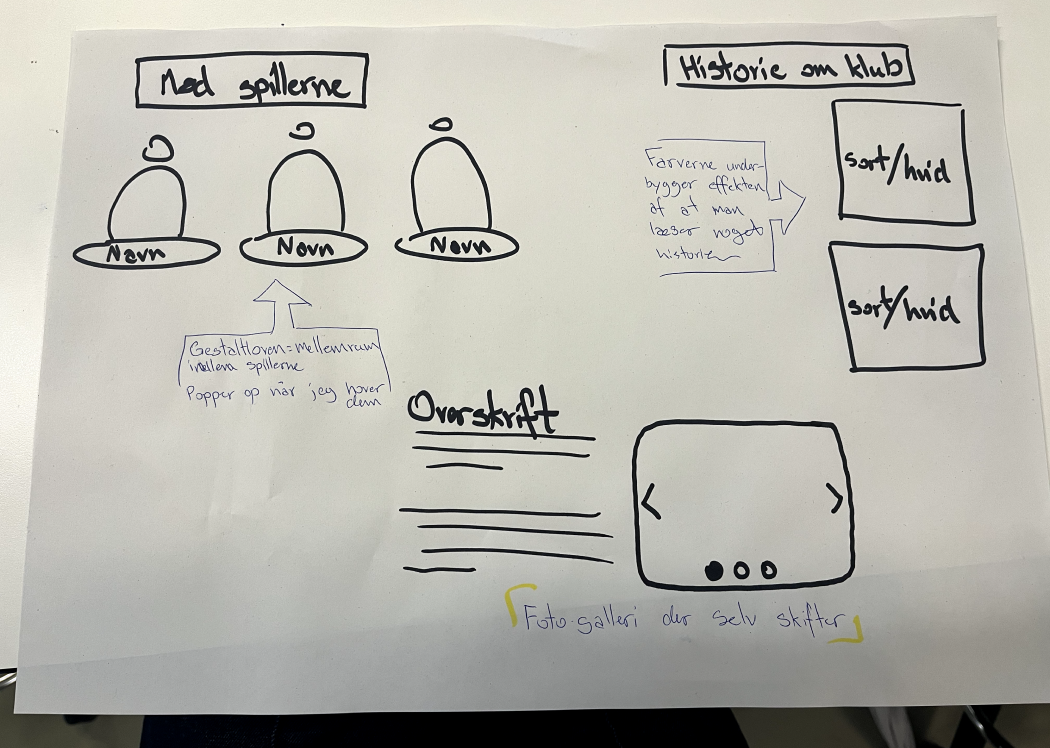 Mød spillerne
Navn
Navn
Navn
Gestaltloven = mellemrum
imellem spillerne
Popper op når jeg hover
dem
Historie om klub
Farverne under-
bygger effekten
af at man
læser noget
historie
sort/hvid
sort/hvid
Overskrift
Foto-galleri der selv skifter